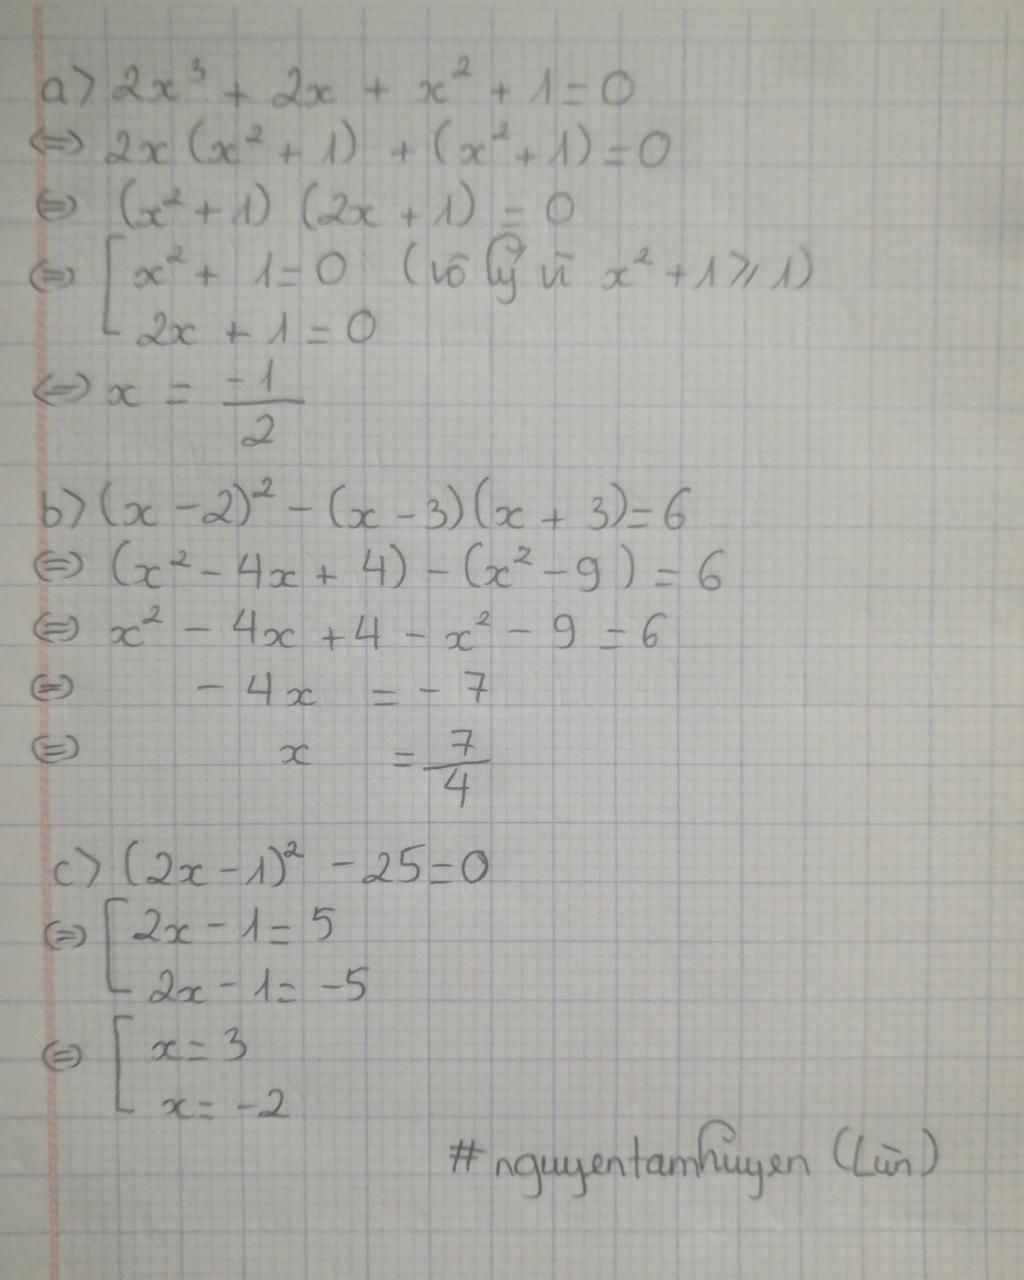 a) 2x³ + 2x + x² + 1 = 0
⇔ 2x (x² + 1) + (x² + 1) = 0
⇔ (x² + 1) (2x + 1) = 0
⇔ [ x² + 1 = 0 (vô lý vì x² + 1 ⩾ 1)
2x + 1 = 0
⇔ x = -1/2
b) (x - 2)² - (x - 3)(x + 3) = 6
⇔ (x² - 4x + 4) - (x² - 9) = 6
⇔ x² - 4x + 4 - x² - 9 = 6
⇔ - 4x = - 7
⇔ x = 7/4
c) (2x - 1)² - 25 = 0
⇔ [ 2x - 1 = 5
2x - 1 = -5
⇔ [ x = 3
x = -2
#nguyentamhuyen (Lùn)